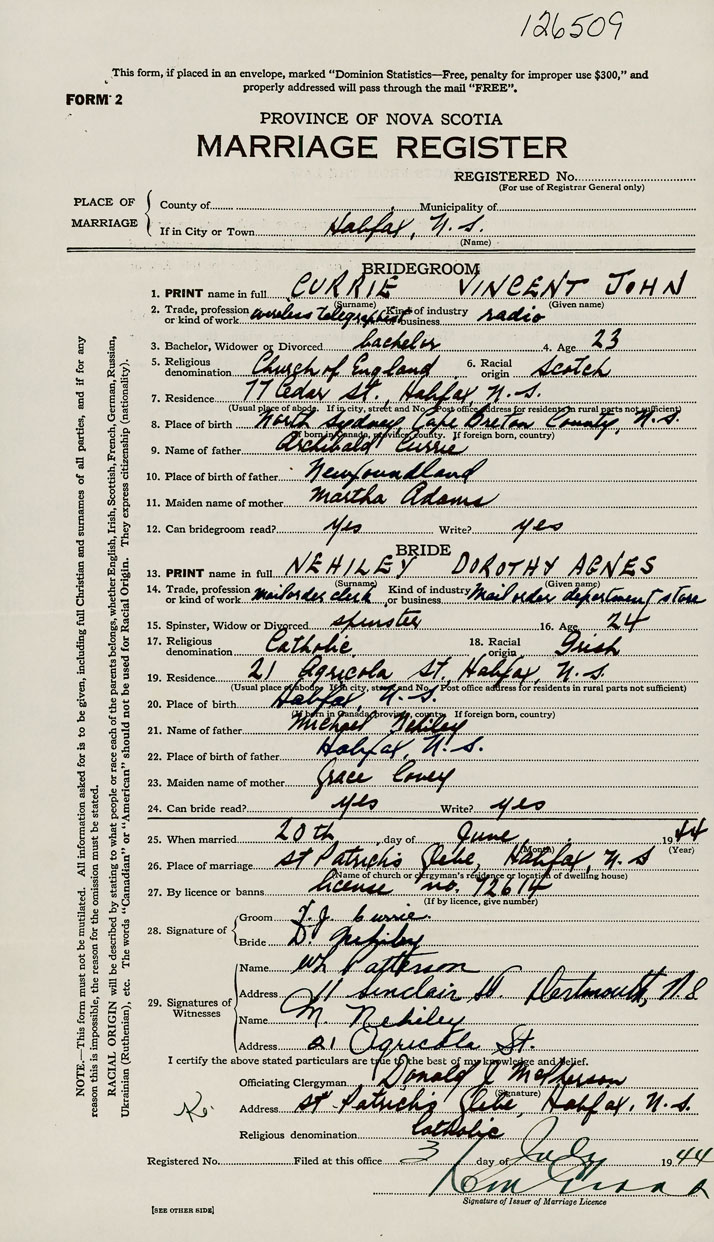 126509
This form, if placed in an envelope, marked "Dominion Statistics—Free, penalty for improper use $300," and
properly addressed will pass through the mail "FREE".
FORM 2
PROVINCE OF NOVA SCOTIA
MARRIAGE REGISTER
REGISTERED No.
(For use of Registrar General only)
PLACE OF MARRIAGE
County of Municipality of
If in City or Town Halifax, N.S.
(Name)
BRIDEGROOM
1. PRINT name in full CURRIE VINCENT JOHN
(Surname) (Given name)
2. Trade, profession or kind of work wireless telegraphist Kind of industry or business radio
3. Bachelor, Widower or Divorced bachelor 4. Age 23
5. Religious denomination Church of England 6. Racial origin Scotch
7. Residence 77 Cedar St., Halifax, N.S.
(Usual place of abode. If in city, street and No. Post office address for residents in rural parts not sufficient)
8. Place of birth North Sydney, Cape Breton County, N.S.
(If born in Canada, province, county. If foreign born, country)
9. Name of father Archibald Currie
10. Place of birth of father Newfoundland
11. Maiden name of mother Martha Adams
12. Can bridegroom read? yes Write? yes
BRIDE
13. PRINT name in full NEHILEY DOROTHY AGNES
(Surname) (Given name)
14. Trade, profession or kind of work mail order clerk Kind of industry or business Mail order department store
15. Spinster, Widow or Divorced spinster 16. Age 24
17. Religious denomination Catholic 18. Racial origin Irish
19. Residence 21 Agricola St., Halifax, N.S.
(Usual place of abode. If in city, street and No. Post office address for residents in rural parts not sufficient)
20. Place of birth Halifax, N.S.
(If born in Canada, province, county. If foreign born, country)
21. Name of father Michael Nehiley
22. Place of birth of father Halifax, N.S.
23. Maiden name of mother Grace Covey
24. Can bride read? yes Write? yes
25. When married 20th day of June 1944
(Month) (Year)
26. Place of marriage St Patrick's Glebe, Halifax, N.S
(Name of church or clergyman's residence or location of dwelling house)
27. By licence or banns license no. 72614
(If by licence, give number)
28. Signature of
Groom V.J. Currie
Bride D. Nehiley
29. Signatures of Witnesses
Name Patterson
Address 11 Sinclair St. Dartmouth, N.S
Name M. Nehiley
Address 21 Agricola St.
I certify the above stated particulars are true to the best of my knowledge and belief.
Officiating Clergyman Donald J McPherson
(Signature)
Address St Patrick's Glebe, Halifax, N.S.
Religious denomination Catholic
Registered No. Filed at this office 3 day of July 1944
Signature of Issuer of Marriage Licence
[SEE OTHER SIDE]
NOTE.—This form must not be mutilated. All information asked for is to be given, including full Christian and surnames of all parties, and if for any
reason this is impossible, the reason for the omission must be stated.
RACIAL ORIGIN will be described by stating to what people or race each of the parents belongs, whether English, Irish, Scottish, French, German, Russian,
Ukrainian (Ruthenian), etc. The words "Canadian" or "American" should not be used for Racial Origin. They express citizenship (nationality).